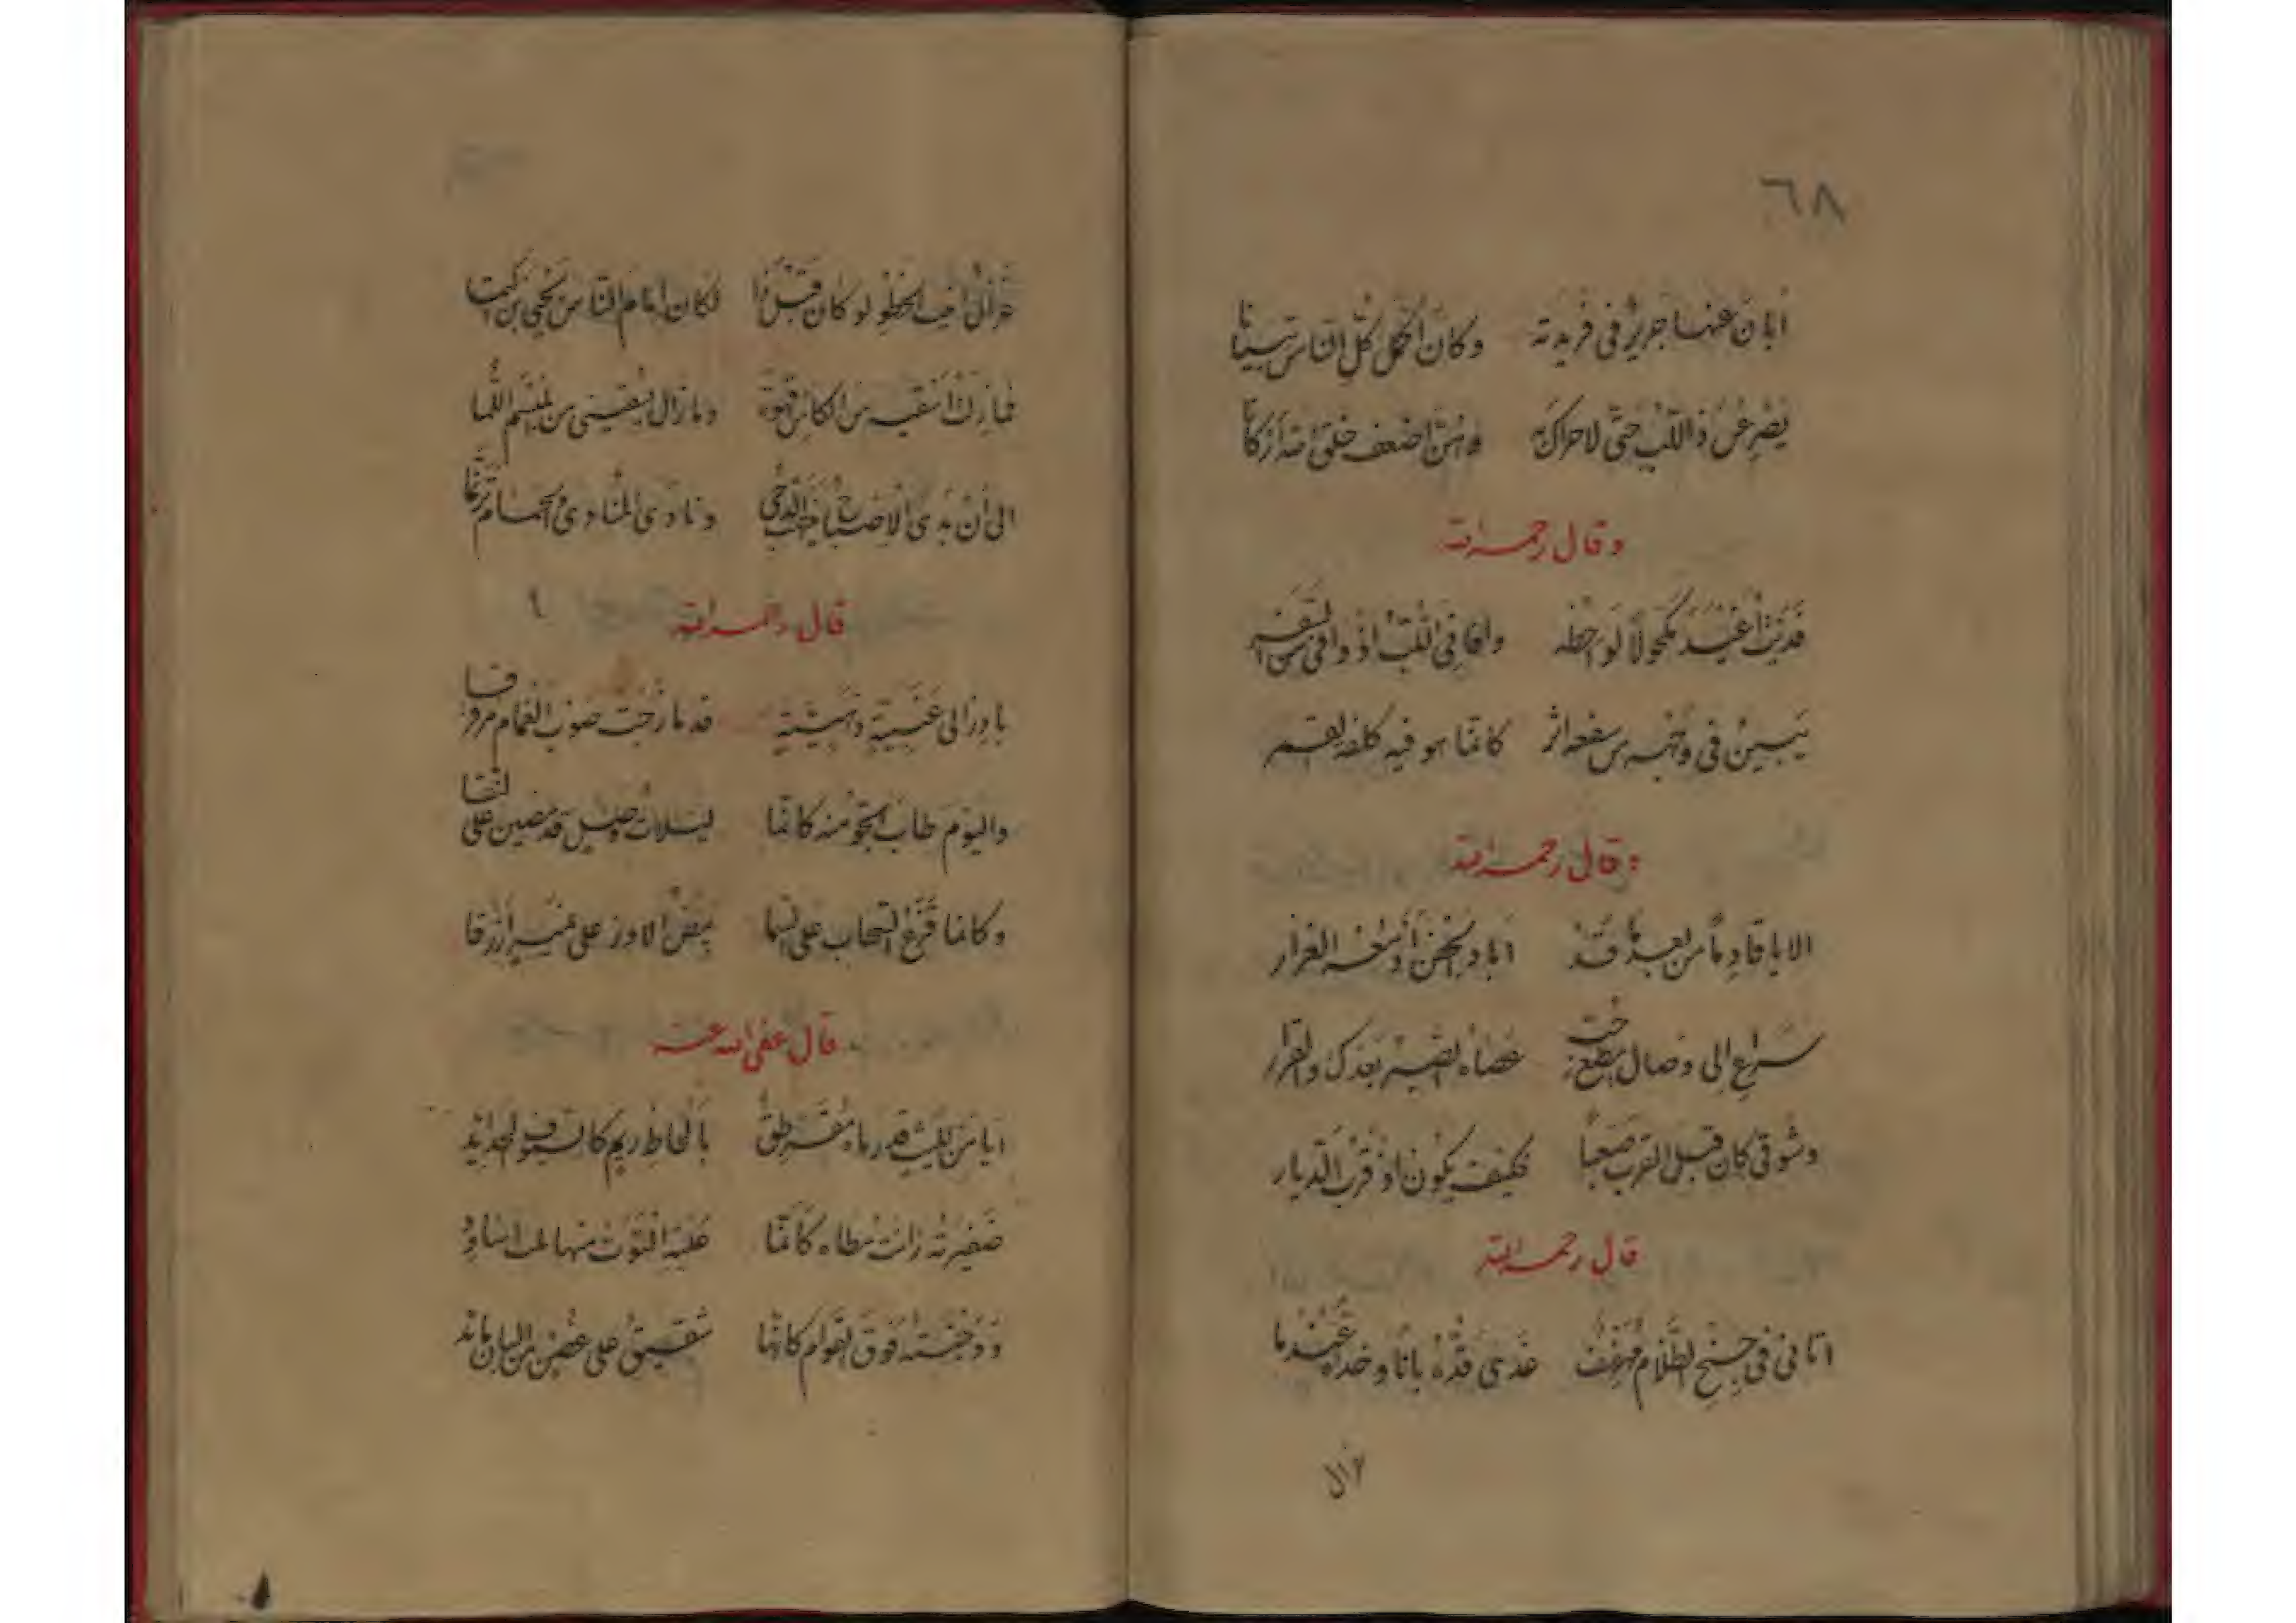 ٦٨
أبان عنها جرير في فريدته وكان أكمل كل الناس تبيانا
يصرعن ذا اللب حتى لا حراك به وهن أضعف خلق الله أركانا
وقال رحمه الله
فديت أغيد مكحولا لواحظه وافا في اللب اذ وافى من السفر
يبين في وجهه من سفعه اثر كانما هو فيه كلفة القمر
وقال رحمه الله
الا يا قادما من بعد ما قد اباد الجفن أدمعه الغزار
سراع إلى وصال فتى عصاه الصبر بعدك والقرار
وشوقي كان قبل القرب صعبا فكيف يكون اذ قرب الديار
قال رحمه الله
اتاني في جنح الظلام مهفهف غدى قده بانا وخداه عندما
غزال الحلو لو كان قبل ذا لكان امام الناس يحيى بن اكثما
فما زلت أسقيه من الكاس قهوة وما زال يسقيني من المبسم اللما
الى أن بدى الاصباح في الدجى ونادى المنادى والحمام ترنما
قال رحمه الله
بادر الى عنبية قد مازجت صوب الغمام مروقا
واليوم طاب الجو منه كانما ليلات وصل قد مضين على لتقا
وكانما قزع السحاب على السما بيض الاوز على غدير أزرقا
قال عفى الله عنه
ايا من لليث قد رماه مقرطق بألحاظ ريم كالسيوف الحدايد
ضفيرته زانت مطاه كأنما عليه التوت منها لمت اساود
ووجنته فوق القوام كانها شقيق على غصن من البان مائد